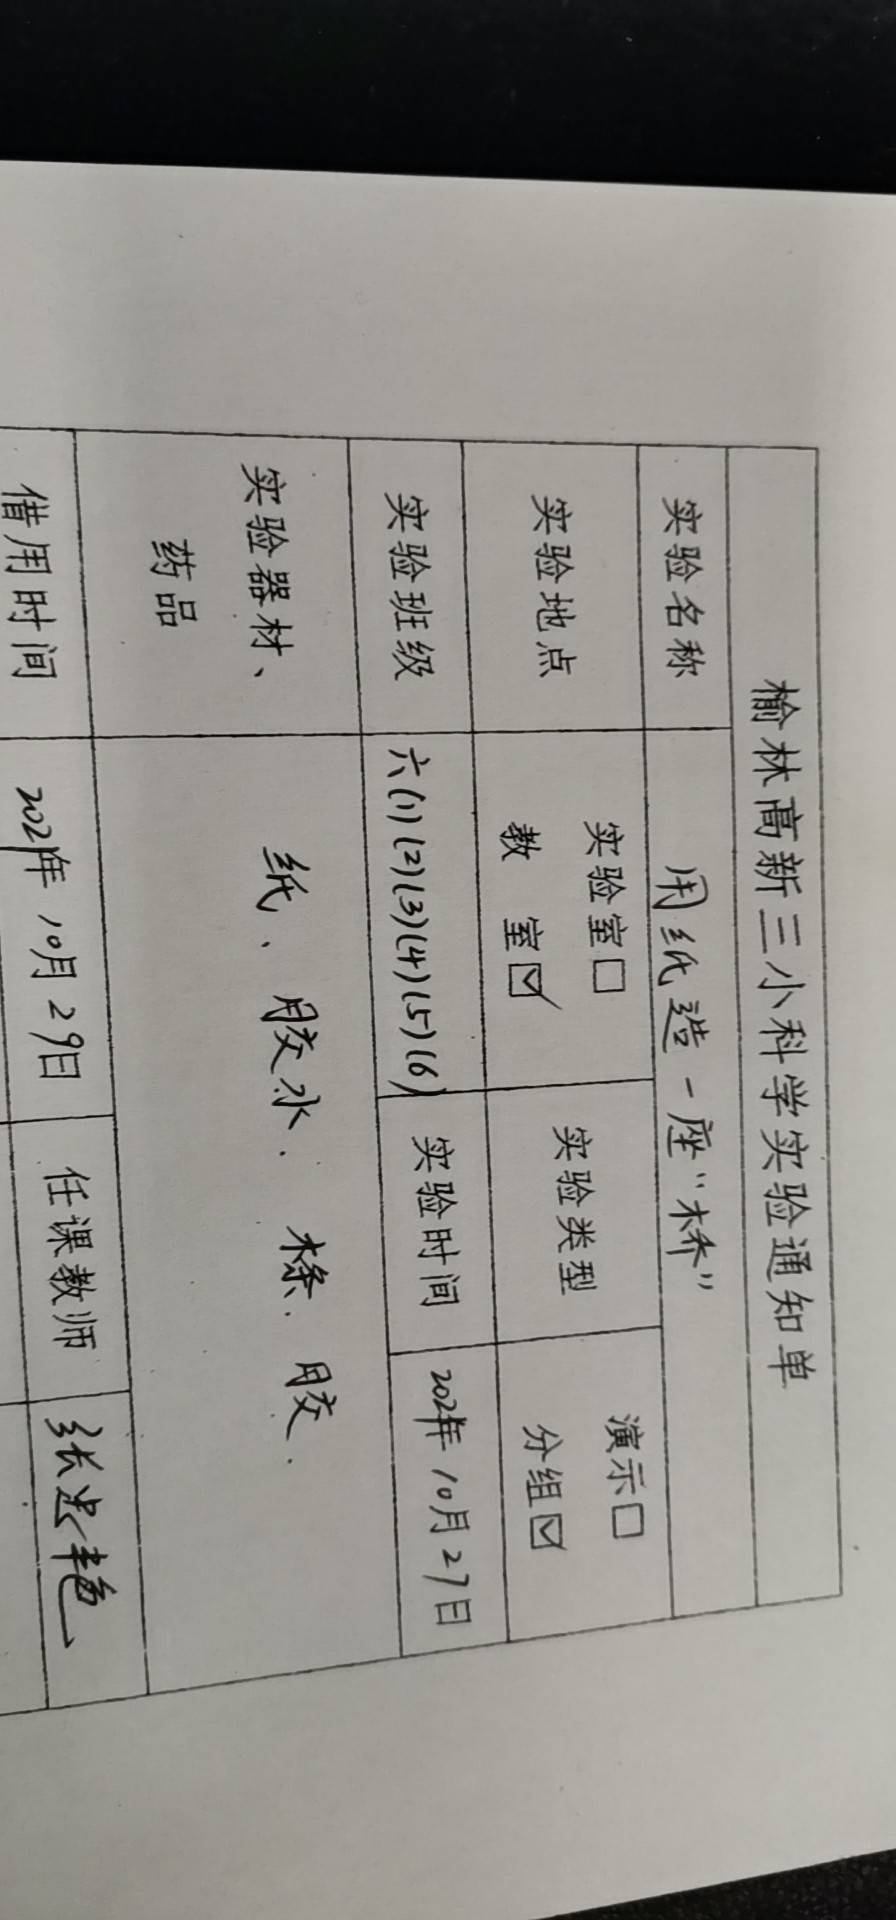 榆林高新三小科学实验通知单
实验名称 用纸造一座“桥”
实验地点 实验室□ 教 室☑ 实验类型 演示□ 分组☑
实验班级 六(1)(2)(3)(4)(5)(6) 实验时间 2021年10月27日
实验器材、药品 纸、胶水.
胶.
借用时间 2021年10月29日 任课教师 张